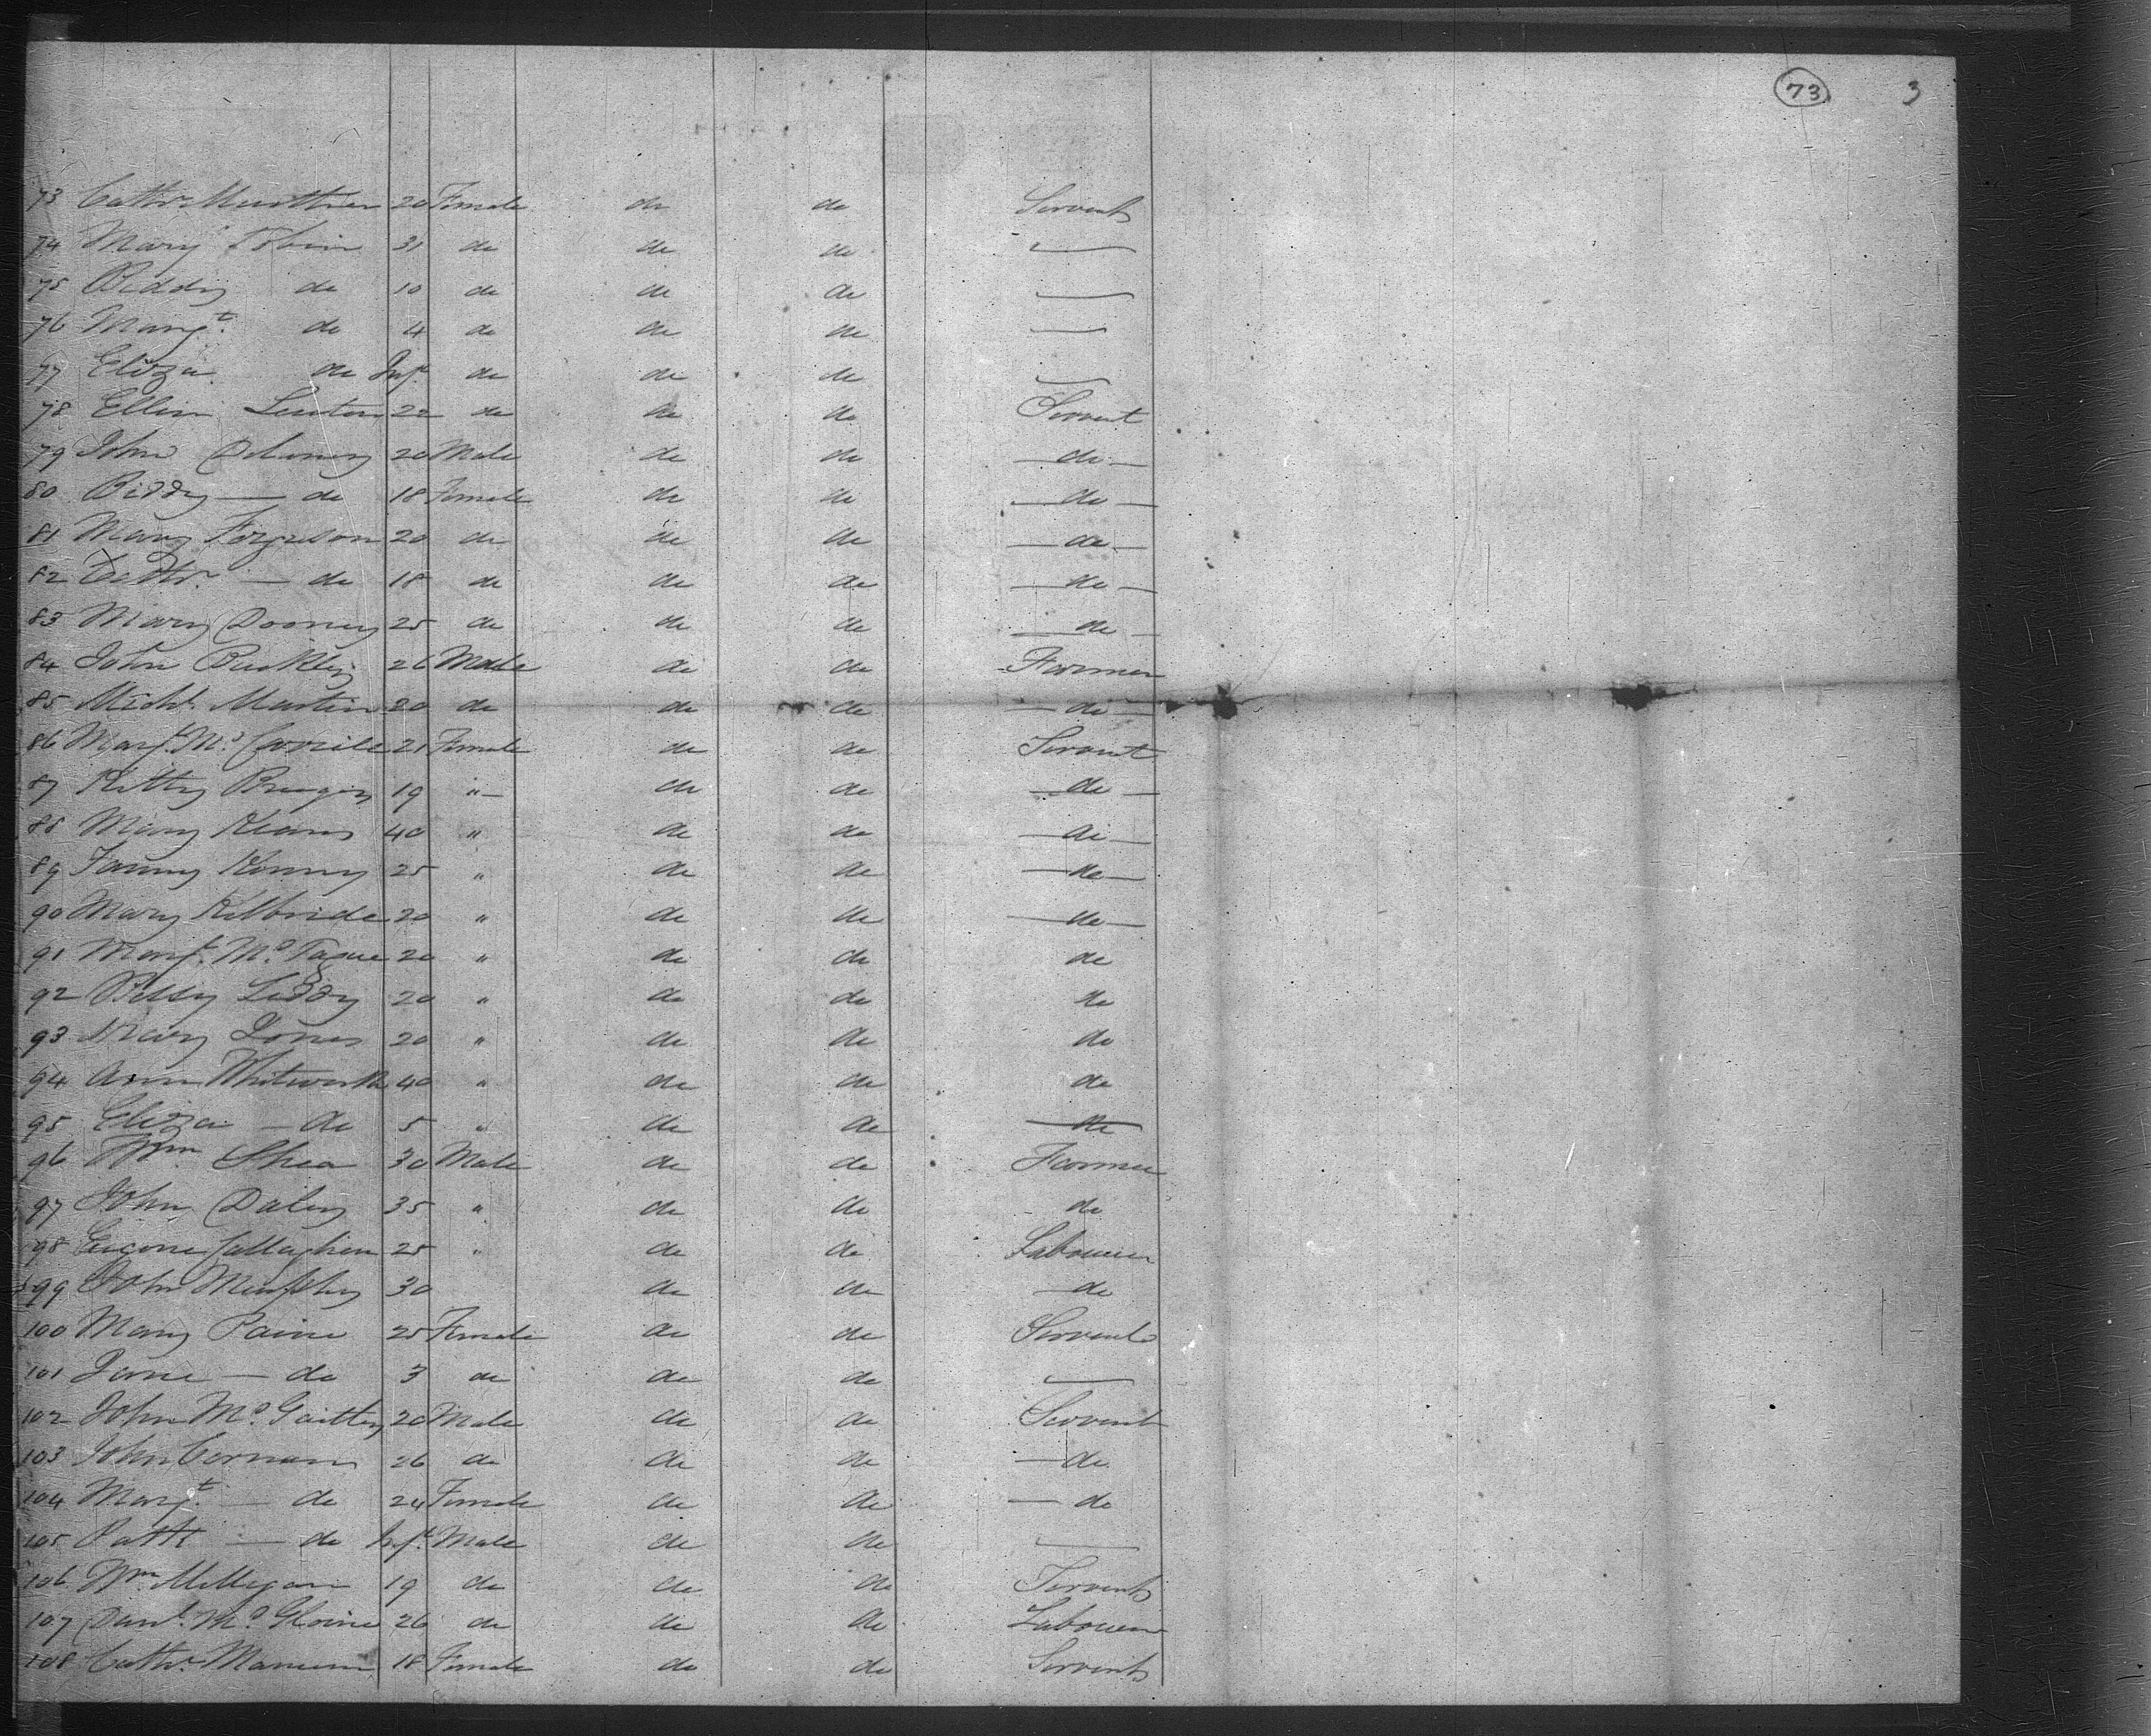 73 3
73 Cathr. 20 Female do do Servant
74 Mary Tobin 31 do do do —
75 Biddy do 10 do do do —
76 Margt. do 4 do do do —
77 Eliza do Inft. do do do —
78 Ellen 22 do do do Servant
79 John Delaney 20 Male do do — do —
80 Biddy — do 18 Female do do — do —
81 Mary Ferguson 20 do do do — do —
82 Cathr. — do 18 do do do — do —
83 Mary Dooney 25 do do do — do —
84 John Buckley 26 Male do do Farmer
85 Michl. Martin 20 do do do — do —
86 Margt. Mc. 21 Female do do Servant
87 Kitty 19 " do do — do —
88 Mary Kearns 40 " do do — do —
89 Fanny Kenny 25 " do do — do —
90 Mary Kilbride 20 " do do — do —
91 Margt. Mc. Tague 20 " do do do
92 Betsy Liddy 20 " do do do
93 Mary Jones 20 " do do do
94 Ann Whitworth 40 " do do do
95 Eliza — do 5 " do do do
96 Wm Shea 30 Male do do Farmer
97 John Daley 35 " do do do
98 Eugene Callaghan 25 " do do Labourer
99 John Murphy 30 do do — do
100 Mary Paine 25 Female do do Servant
101 Jane — do 3 do do do —
102 John Mc. 20 Male do do Servant
103 John 26 do do do — do
104 Margt. — do 24 Female do do — do
105 Patk — do Inft. Male do do —
106 Wm Milligan 19 do do do Servant
107 Danl. Mc. 26 do do do Labourer
108 Cathr. 18 Female do do Servant